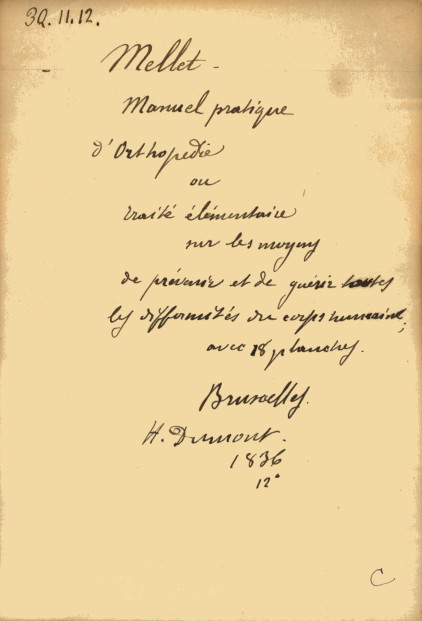 3Q.11.12.
Mellet -
Manuel pratique
d'Orthopedie
ou
traité élémentaire
sur les moyens
de prévenir et de guérir toutes
les difformités du corps humain;
avec 18 planches.
Bruxelles.
H. Dumont.
1836
12°
C